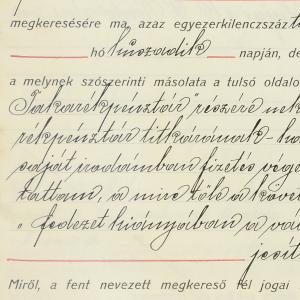 megkeresésére ma, azaz egyezerkilenczszáz
hó huszadik napján, de
a melynek szószerinti másolata a tulsó oldalo
Takarékpénztár" részére nek
rékpénztár titkárának
saját irodámban fizetés vége
tattam, a mire tőle a köve
" fedezet hiányában a va
jesít
Miről, a fent nevezett megkereső fél jogai